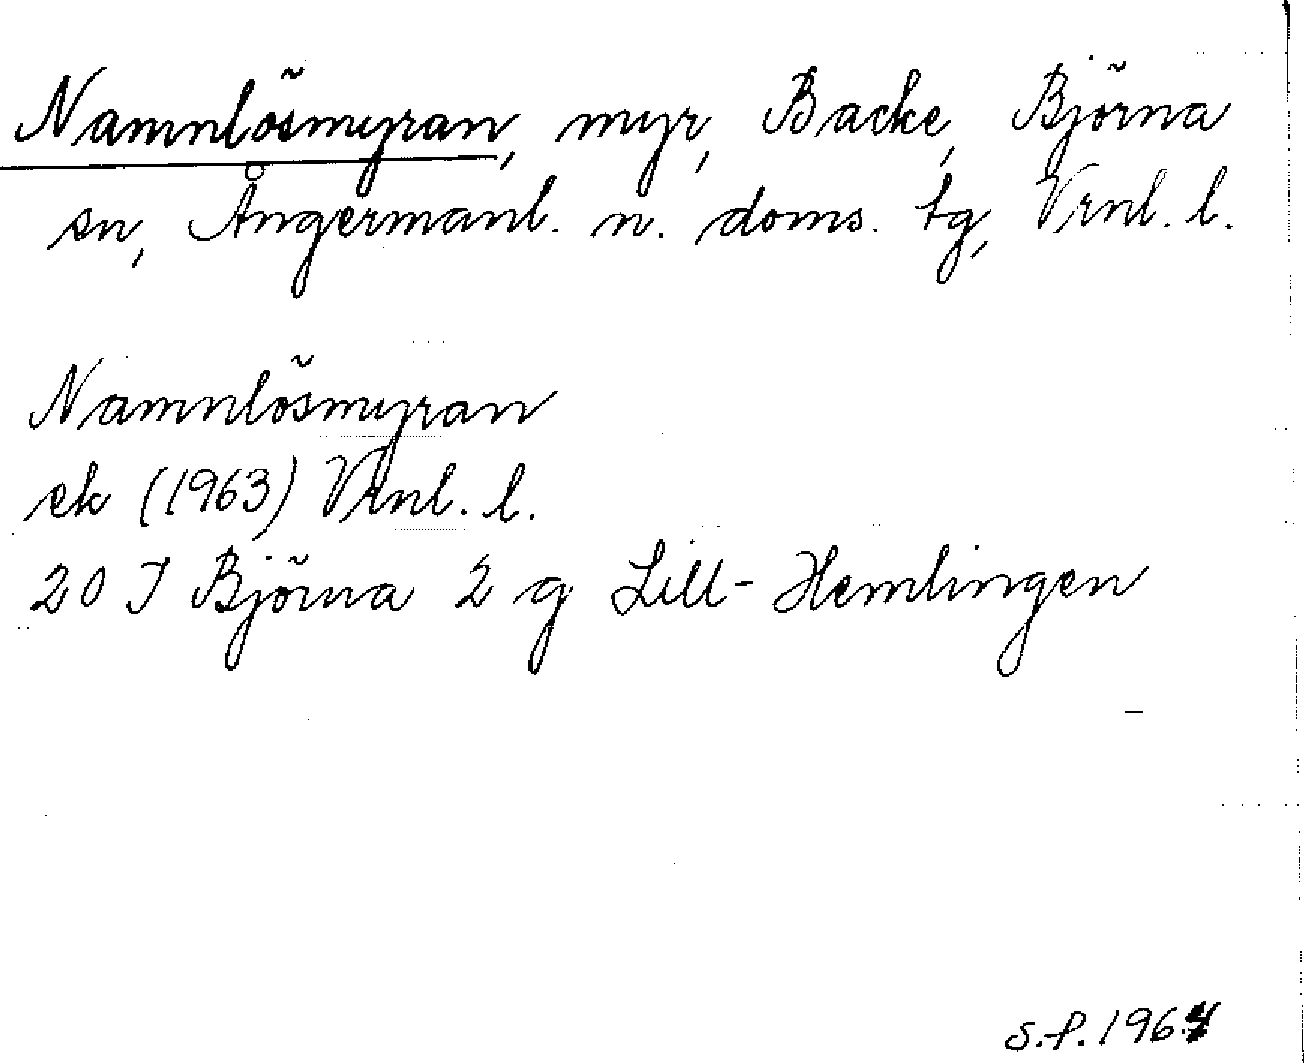 Namnlösmyran, myr, Backe, Björna
sn, Ångermanl. n. doms. tg, Vrnl. l.
Namnlösmyran
ek (1963) Vrnl. l.
20 I Björna 2 g Lill-Hemlingen
S.P. 1964